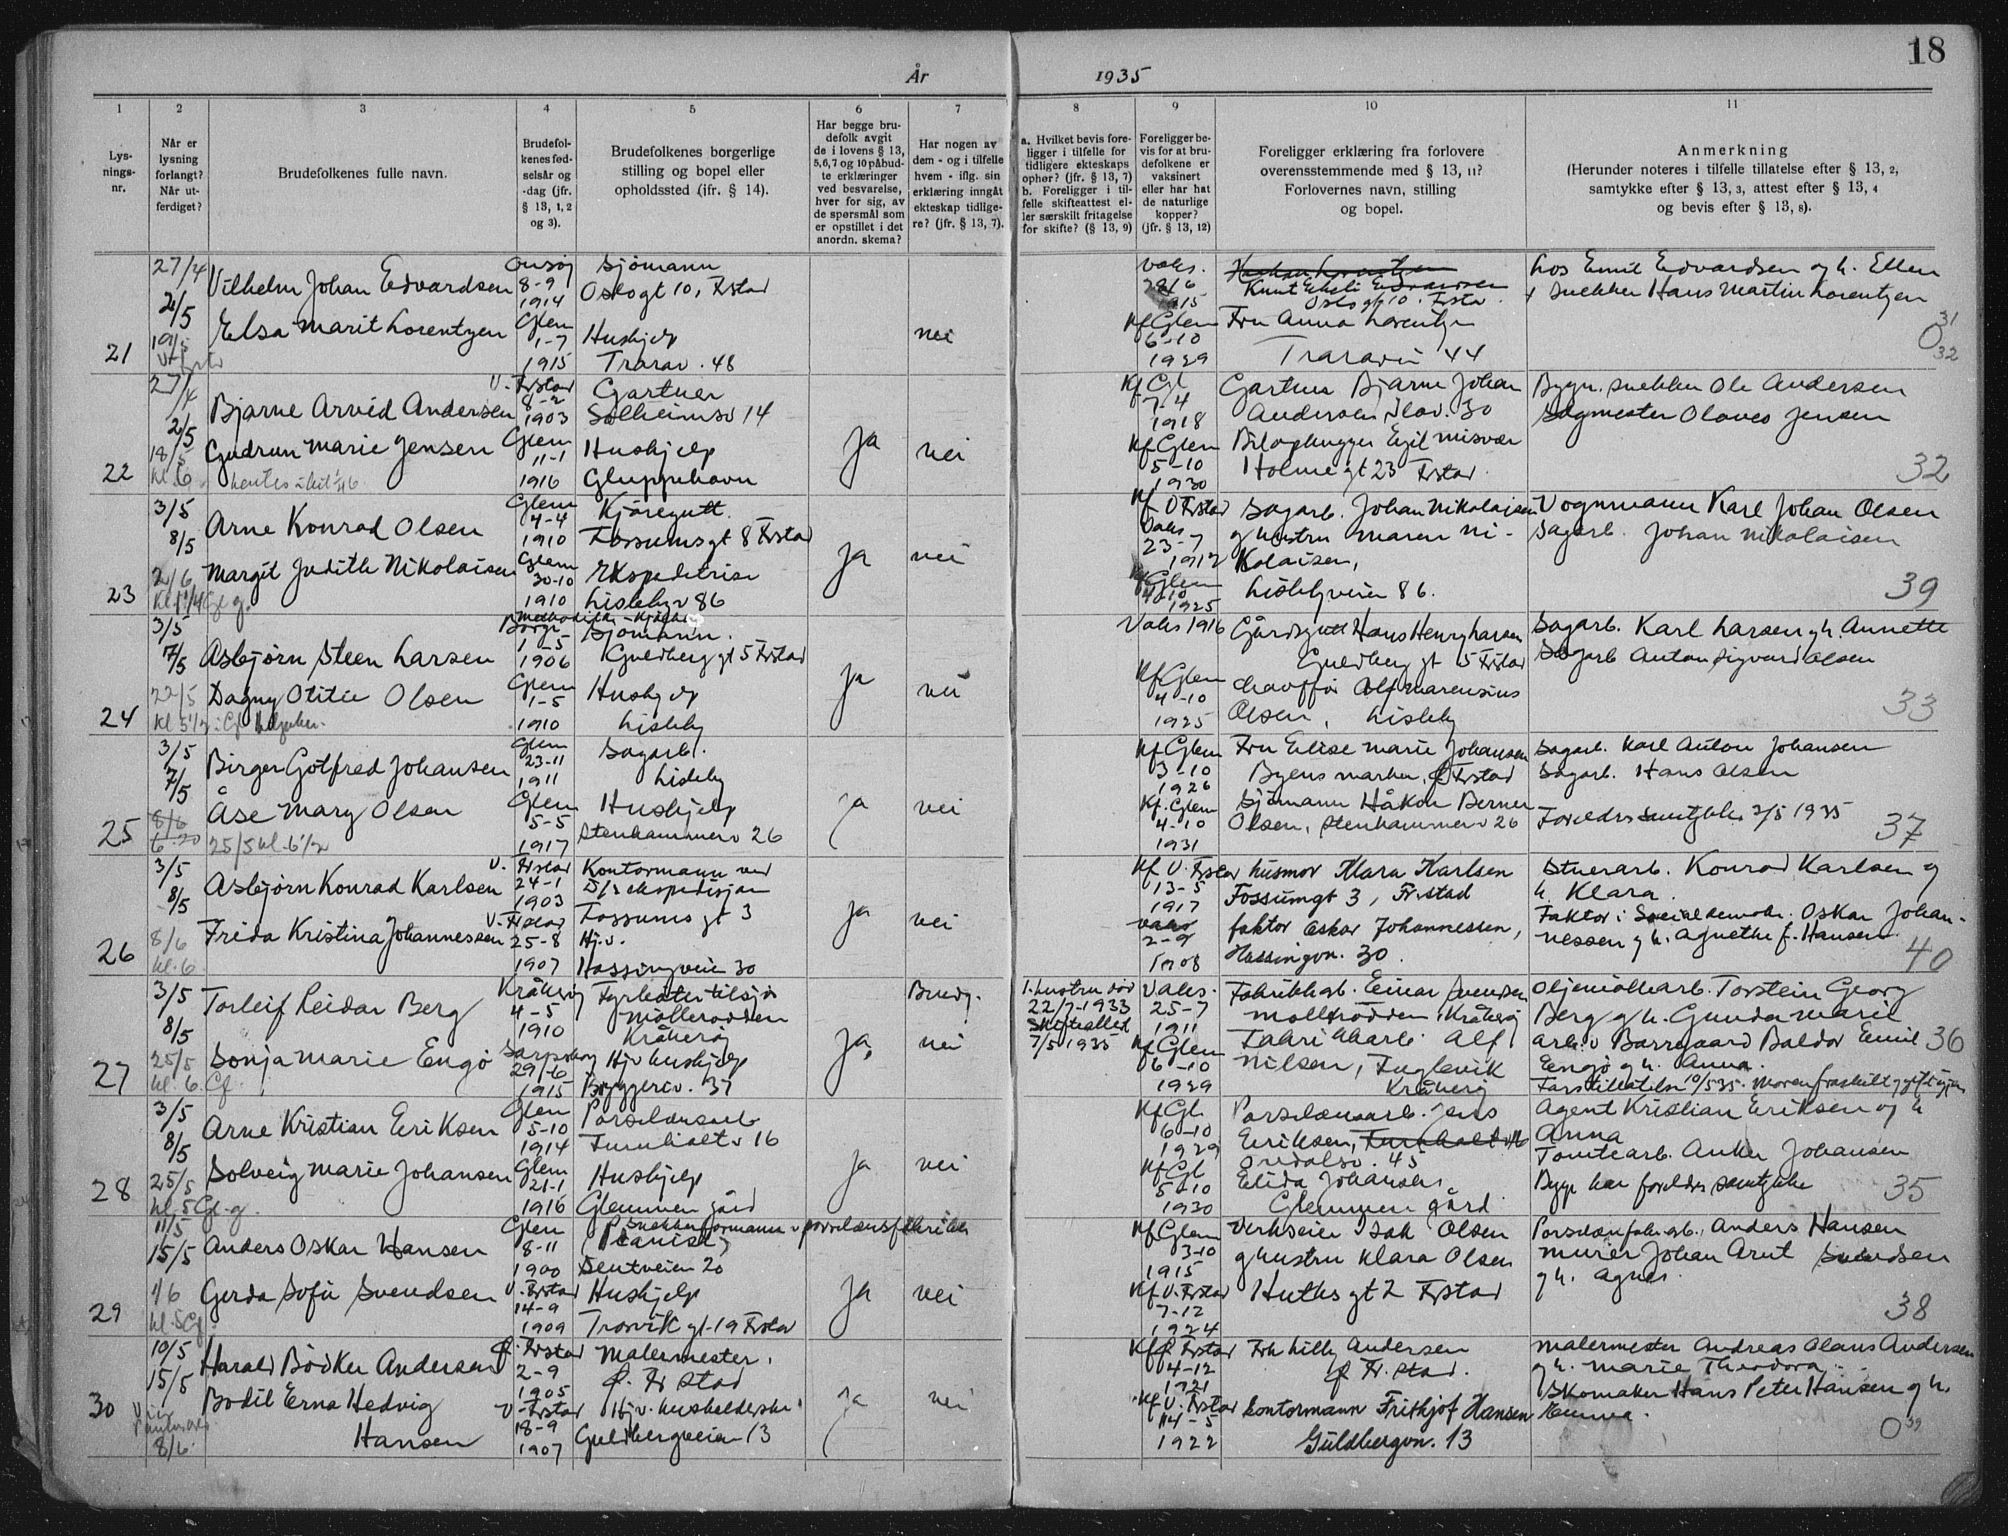 18
År 1935
1 2 3 4 5 6 7 8 9 10 11
Lys-
nings-
nr.
Når er
lysning
forlangt?
Når ut-
ferdiget?
Brudefolkenes fulle navn.
Brudefol-
kenes fød-
selsår og
-dag (jfr.
§ 13, 1, 2
og 3).
Brudefolkenes borgerlige
stilling og bopel eller
opholdssted (jfr. § 14).
Har begge bru-
defolk avgit
de i lovens § 13,
5,6,7 og 10 påbud-
te erklæringer
ved besvarelse,
hver for sig, av
de spørsmål som
er opstillet i det
anordn. skema?
Har nogen av
dem - og i tilfelle
hvem - iflg. sin
erklæring inngåt
ekteskap tidlige-
re? (jfr. § 13, 7).
a. Hvilket bevis fore-
ligger i tilfelle for
tidligere ekteskaps
ophør? (jfr. § 13, 7)
b. Foreligger i til-
felle skifteattest el-
ler særskilt fritagelse
for skifte? (§ 13, 9)
Foreligger be-
vis for at bru-
defolkene er
vaksinert
eller har hat
de naturlige
kopper?
(jfr. § 13, 12)
Foreligger erklæring fra forlovere
overensstemmende med § 13, 11?
Forlovernes navn, stilling
og bopel.
Anmerkning
(Herunder noteres i tilfelle tillatelse efter § 13, 2,
samtykke efter § 13, 3, attest efter § 13, 4
og bevis efter § 13, 8).
21
27/4
2/5
Vilhelm Johan Edvardsen
Elsa Marit Lorentzen
Onsøy
8-9
1914
Glem
1-7
1915
Sjømann
Oslogt 10, Frstad
Hushjelp
Trarav. 48
nei
vaks.
28/6
1915
Kf Glem
6-10
1929
Oslogt 10. Frstad.
Fru Anna Lorentzen
44
Los Emil Edvardsen og h. Ellen
snekker Hans Martin Lorentzen
31
0
32
22
27/4
2/5
18/5
Kl. 6
Bjarne Arvid Andersen
Gudrun Marie Jensen
V. Frstad
8-2
1903
Glem
11-1
1916
Gartner
Solheimsv 14
Hushjelp
Gluppehavn
Ja
nei
Kf Gl
7-4
1918
Kf Glem
5-10
1930
Gartner Bjarne Johan
Andersen, 30
Egil Misvær
Holmegt 23 Frstad.
Bygn. snekker Ole Andersen
Sagmester Olaves Jensen
32
23
3/5
8/5
2/6
Arne Konrad Olsen
Margit Judith Nikolaisen
Glem
4-4
1910
Glem
30-10
1910
Kjøregutt.
Fossumsgt 8 Frstad
Ekspeditrise
Lislebyv 86
Ja
nei
Kf V Frstad
Vaks
23-7
1912
Kf Glem
4-10
1925
Sagarb. Johan Nikolaisen
g hustru Maren Ni-
kolaisen,
Lislebyveien 86.
Vognmann Karl Johan Olsen
Sagarb. Johan Nikolaisen
39
24
3/5
7/5
22/5
Kl 5 1/2
Asbjørn Steen Larsen
Dagny Otilie Olsen
Borge
1-5
1906
Glem
1-5
1910
Sjømann.
Guldberg gt 5 Frstad
Hushjelp
Lisleby
ja
nei
Vaks 1916
Kf Glem
4-10
1925
Gårdsgutt Hans Henry Larsen
Guldberg gt 5 Frstad
Chauffør Alf Marensius
Olsen, Lisleby
Sagarb. Karl Larsen g h. Annette
Sagarb Anton Sigvard Olsen
33
25
3/5
7/5
8/6
6-20
25/5 kl. 6 1/2
Birger Gotfred Johansen
Åse Mary Olsen
Glem
23-11
1911
Glem
5-5
1917
Sagarb.
Lisleby
Hushjelp
Stenhammerv 26
ja
nei
Kf Glem
3-10
1926
Kf. Glem
4-10
1931
Fru Elise Marie Johansen
Byens marker, Ø Frstad
Sjømann Håkon Berner
Olsen, Stenhammerv 26
Sagarb. Karl Anton Johansen
Sagarb. Hans Olsen
Foreldres samtykke 2/5 1935
37
26
3/5
8/5
8/6
kl. 6
Asbjørn Konrad Karlsen
Frida Kristina Johannessen
V. Frstad
24-1
1903
V. Frstad
25-8
1907
Kontormann ved
D/s ekspedisjon
Fossumsgt 3
Hj.v.
Hassingveien 30
ja
nei
Kf V. Frstad
13-5
1917
vaks
2-9
1908
husmor Klara Karlsen
Fossumgt 3, Fr.stad
faktor Oskar Johannessen,
Hassingvn. 30.
Stuerarb. Konrad Karlsen g
h. Klara.
Faktor i Socialdemokr. Oskar Johan-
nessen g h. Agnethe f. Hansen.
40
27
3/5
8/5
25/5
kl. 6. Gl.
Torleif Reidar Berg
Sonja Marie Engø
Kråkerøy
4-5
1910
Sarpsborg
29-6
1915
Møllerodden
Kråkerøy
Hjv. hushjelp
Bryggeriv. 37
Ja,
Brudg.
nei
1. hustru død
22/7-1933
Skifteattest
7/5 1935
Vaks.
25-7
1911
Kf Glem
6-10
1929
Fabrikkarb. Einar Svendsen
Møllerodden, Kråkerøy
Fabrikkarb. Alf
Nilsen, Fuglevik
Kråkerøy
Oljemøllearb. Torstein Georg
Berg g h. Gunda Marie
Arb. v Borregaard Baldor Emil
Engø g h. Anna.
Farstillatelse 10/5 35. Moren fraskilt, gift igjen
36
28
3/5
8/5
25/5
kl. 5 Gl. g.
Arne Kristian Eriksen
Solveig Marie Johansen
Glem
5-10
1914
Glem
21-1
1916
Porselænsarb
Furuholtv 16
Hushjelp
Glemmen gård
Ja
nei
Kf Gl.
6-10
1929
Kf Gl
5-10
1930
Porselænsarb. Jens
Eriksen,
Oredalsv. 45
Elida Johansen,
Glemmen gård
Agent Kristian Eriksen og h
Anna
Tomtearb. Anker Johansen
Begge har foreldres samtykke
35
29
11/5
15/5
1/6
kl. 5 Gl.
Anders Oskar Hansen
Gerda Sofie Svendsen
Glem
8-11
1900
V. Frstad
14-9
1909
Snekkerformann v porselænsfabrikken
(Pianist)
Sentveien 20
Hushjelp
Trosvik gt. 19 Frstad
Ja
nei
Kf Glem
3-10
1915
Kf V. Frstad
7-12
1924
Verkseier Isak Olsen
g hustru Klara Olsen
Huths gt 2 Frstad
Porselænfabr.arb. Anders Hansen
Murer Johan Arnt Svendsen
g h. Agnes.
38
30
10/5
15/5
8/6
Harald Bödker Andersen
Bodil Erna Hedvig
Hansen
Ø. Frstad
2-9
1905
V. Frstad
18-9
1907
Malermester.
Ø. Fr stad
Guldbergveien 13
ja
nei
Kf Ø Frstad
4-12
1921
Kf V. Frstad
14-5
1922
Frk Lilly Andersen
Ø Fr. stad.
Kontormann Frithjof Hansen
Guldbergvn. 13
Malermester Andreas Olaus Andersen
g h. Marie Theodora.
Skomaker Hans Peter Hansen g h.
Emma.
0
39